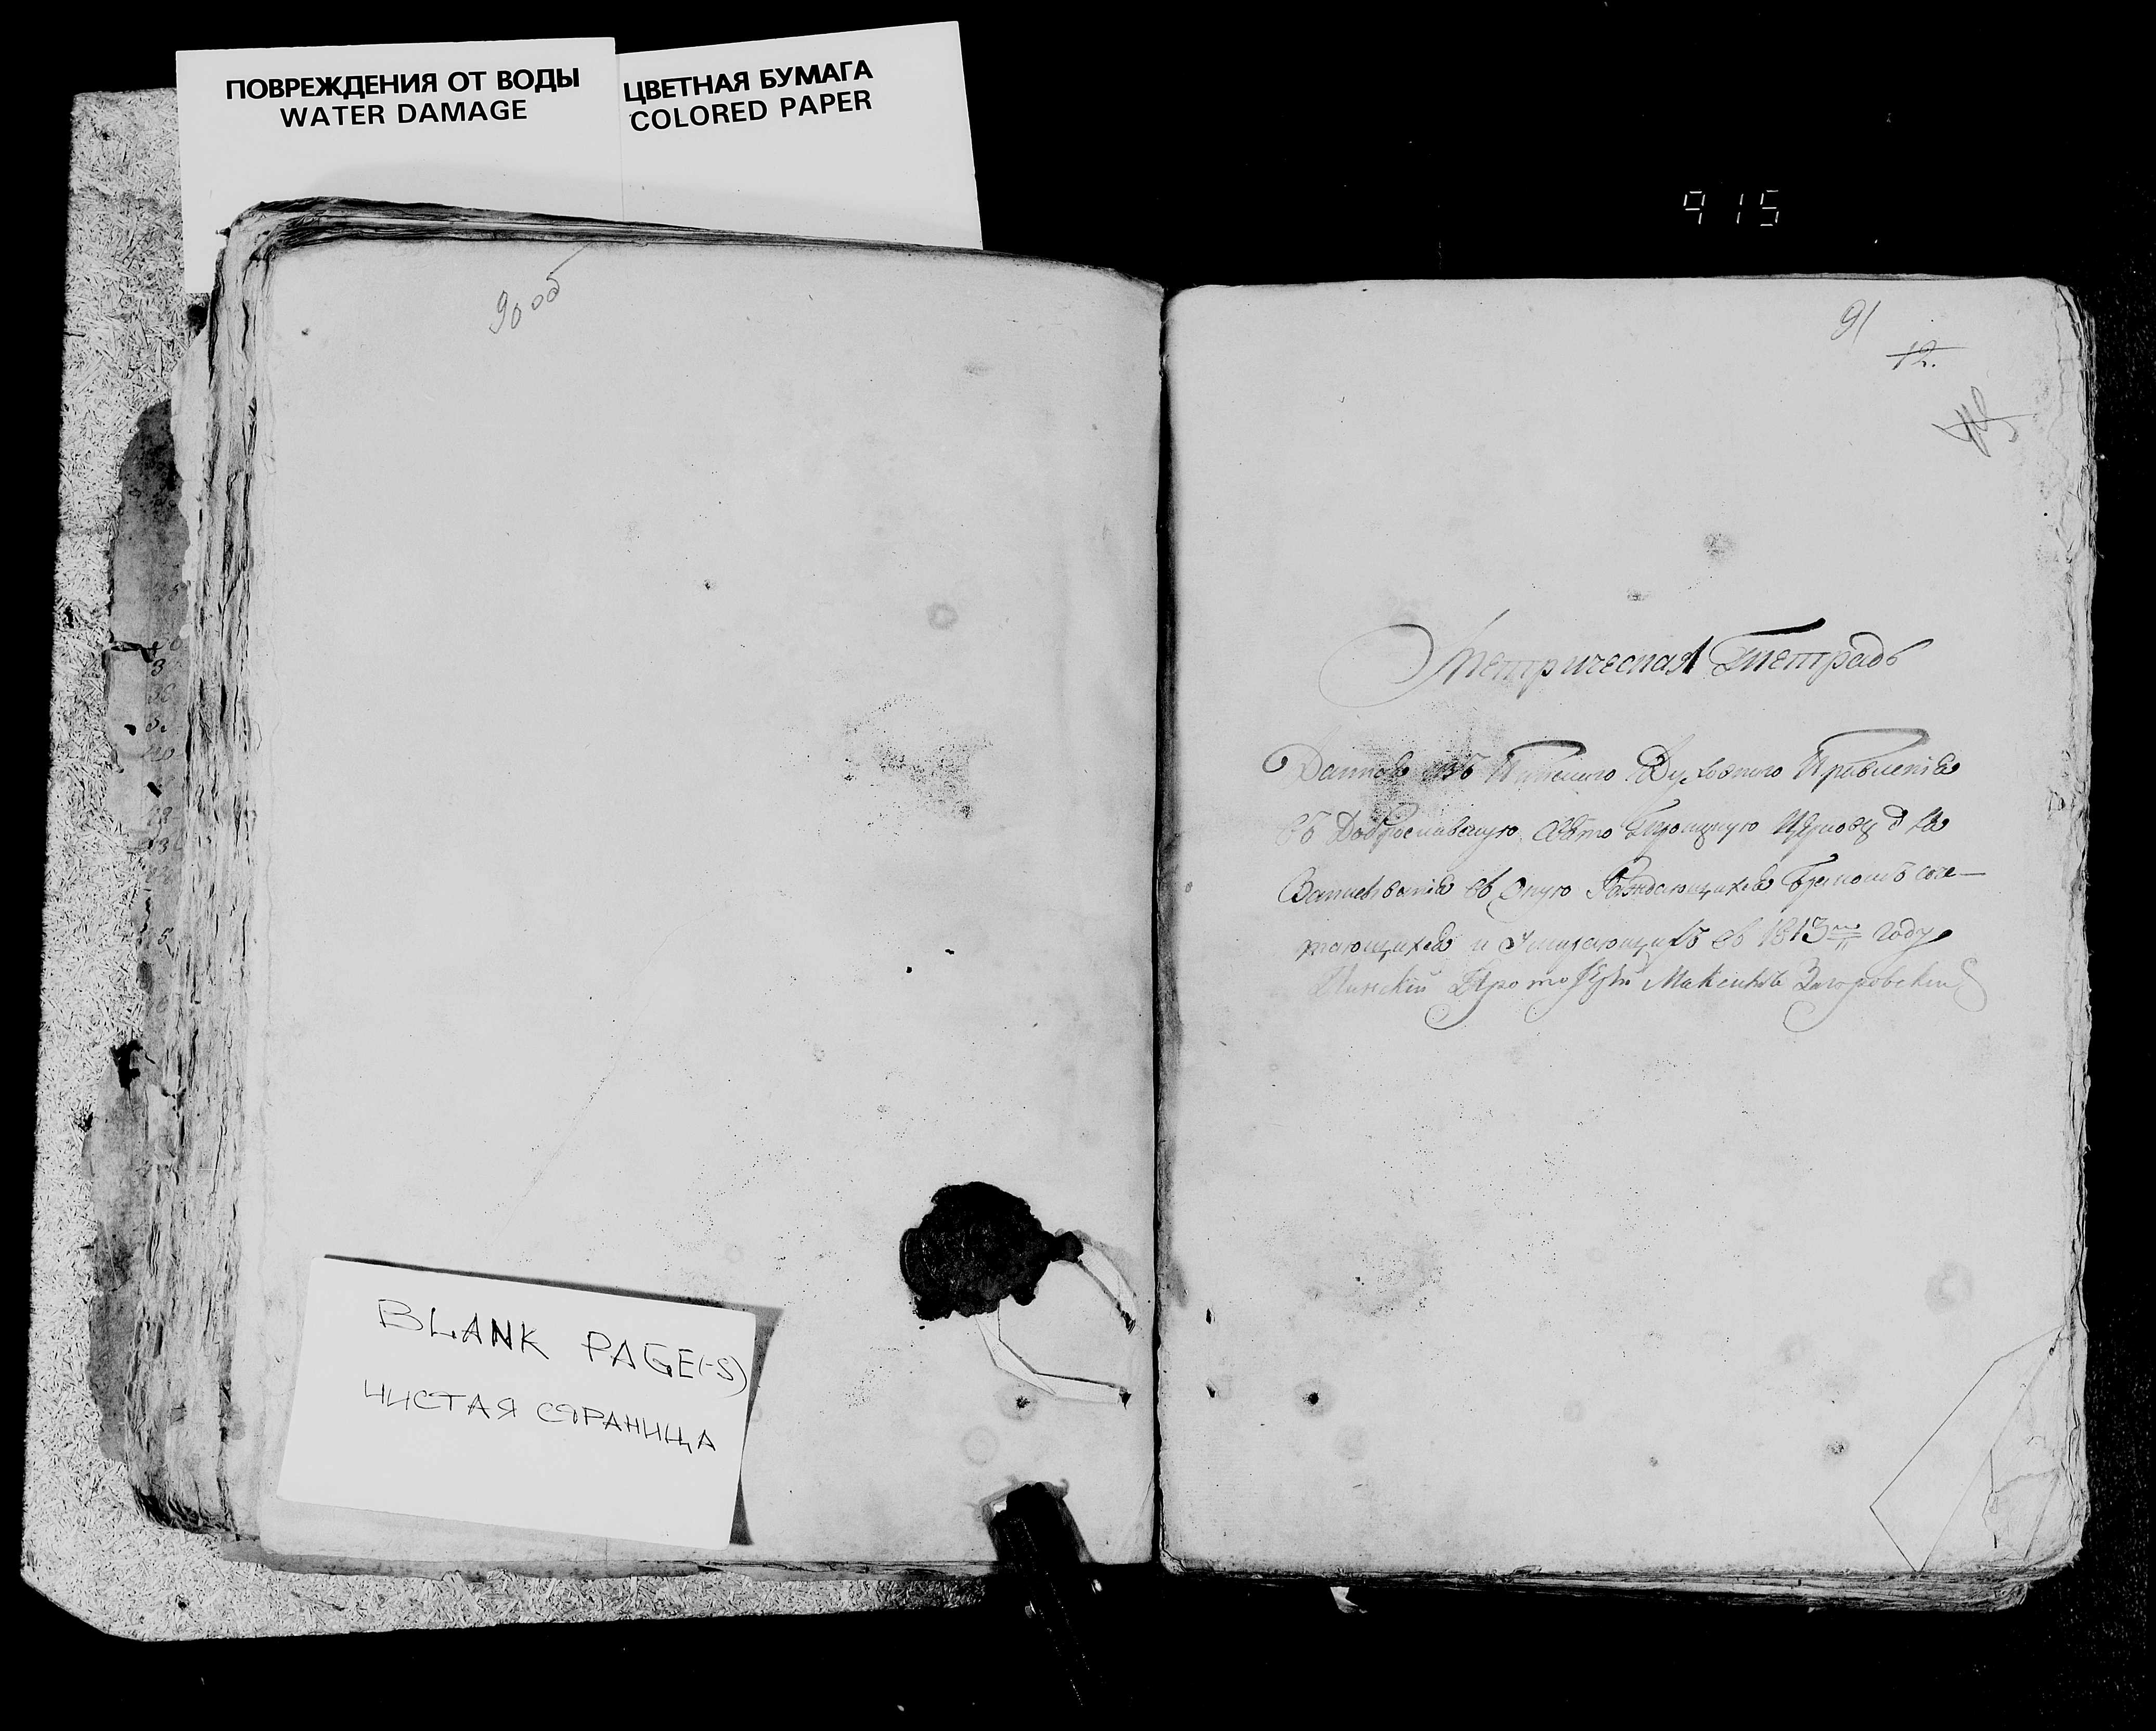 ПОВРЕЖДЕНИЯ ОТ ВОДЫ
WATER DAMAGE
ЦВЕТНАЯ БУМАГА
COLORED PAPER
915
90об
91
12.
Метрическая тетрадь
Данная изъ Пинского Духовного Правленія
въ Доброславскую Свято Троицкую Церковь для
Записыванія въ оную Раждающихся бракомъ соче-
тающихся и Умирающихъ въ 1813м году
Пинскій Протоіерей Максимъ Загоровскій
BLANK PAGE(-S)
ЧИСТАЯ СТРАНИЦА